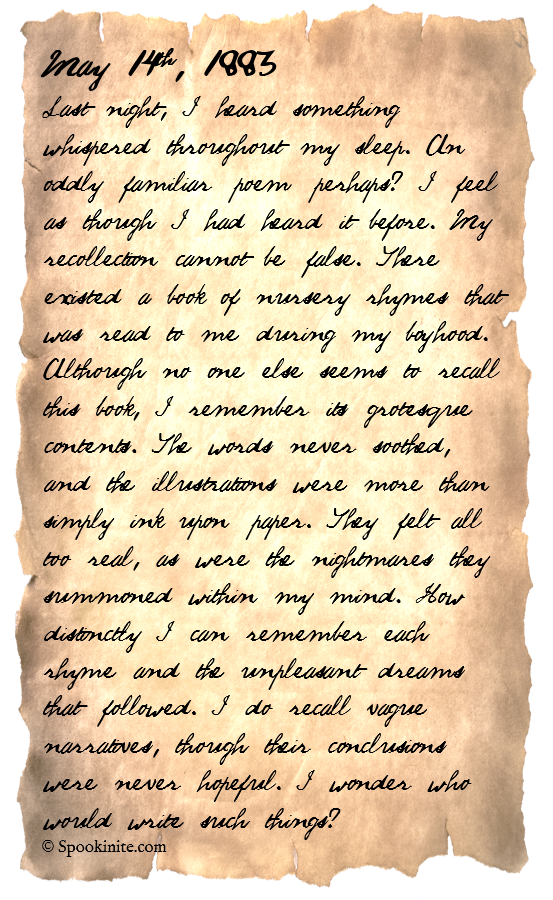 May 14th, 1883
Last night, I heard something
whispered throughout my sleep. An
oddly familiar poem perhaps? I feel
as though I had heard it before. My
recollection cannot be false. There
existed a book of nursery rhymes that
was read to me during my boyhood.
Although no one else seems to recall
this book, I remember its grotesque
contents. The words never soothed,
and the illustrations were more than
simply ink upon paper. They felt all
too real, as were the nightmares they
summoned within my mind. How
distinctly I can remember each
rhyme and the unpleasant dreams
that followed. I do recall vague
narratives, though their conclusions
were never hopeful. I wonder who
would write such things?
© Spookinite.com